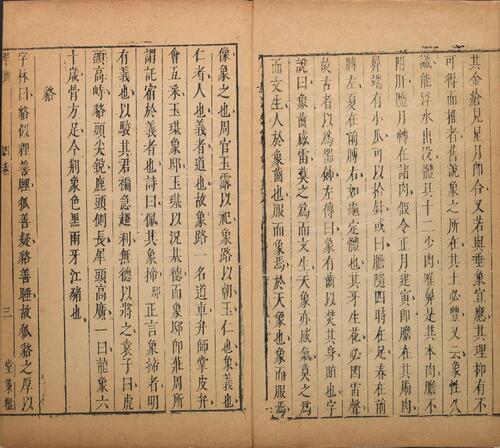 其令給見星月即合又若與象宜應其理抑有不
可得而推者舊說象之所在其土必豐又云象性久
識能浮水出沒體具十二少肉雖鼻是其本肉膽不
附肝隨月轉在諸肉假令正月建寅即膽在其肉
鼻端有小爪可以拾針或曰膽隨四時在足春在前
膊左夏在前膊右如龜定體也其牙生花必因雷聲
故古者以爲器左傳曰象有齒以焚其身賄也字
說曰象齒感雷莫之爲而文生天象亦感氣莫之爲
而文生人於象齒也服而象焉於天象也象而焉
像象之也周官玉路以祀象路以朝玉仁也象義也
仁者人也義者道也故象路一名道車弁師掌皮弁
會五采玉璂象邸玉璂以況基德而象邸邸周所
謂託宿於義者也詩曰佩其象揥 正言象揥者明
有義也以駿其君褊急趨利無德以將之袁子曰虎
頭高峙貉頭尖銳鹿頭側長犀頭高廣一曰龍象六
十歲骨方足今荆象色黑兩牙江豬也
貉
字林曰貉似貍善睡狐善疑貉善睡故狐貉之厚以
四卷
三
堂策檻